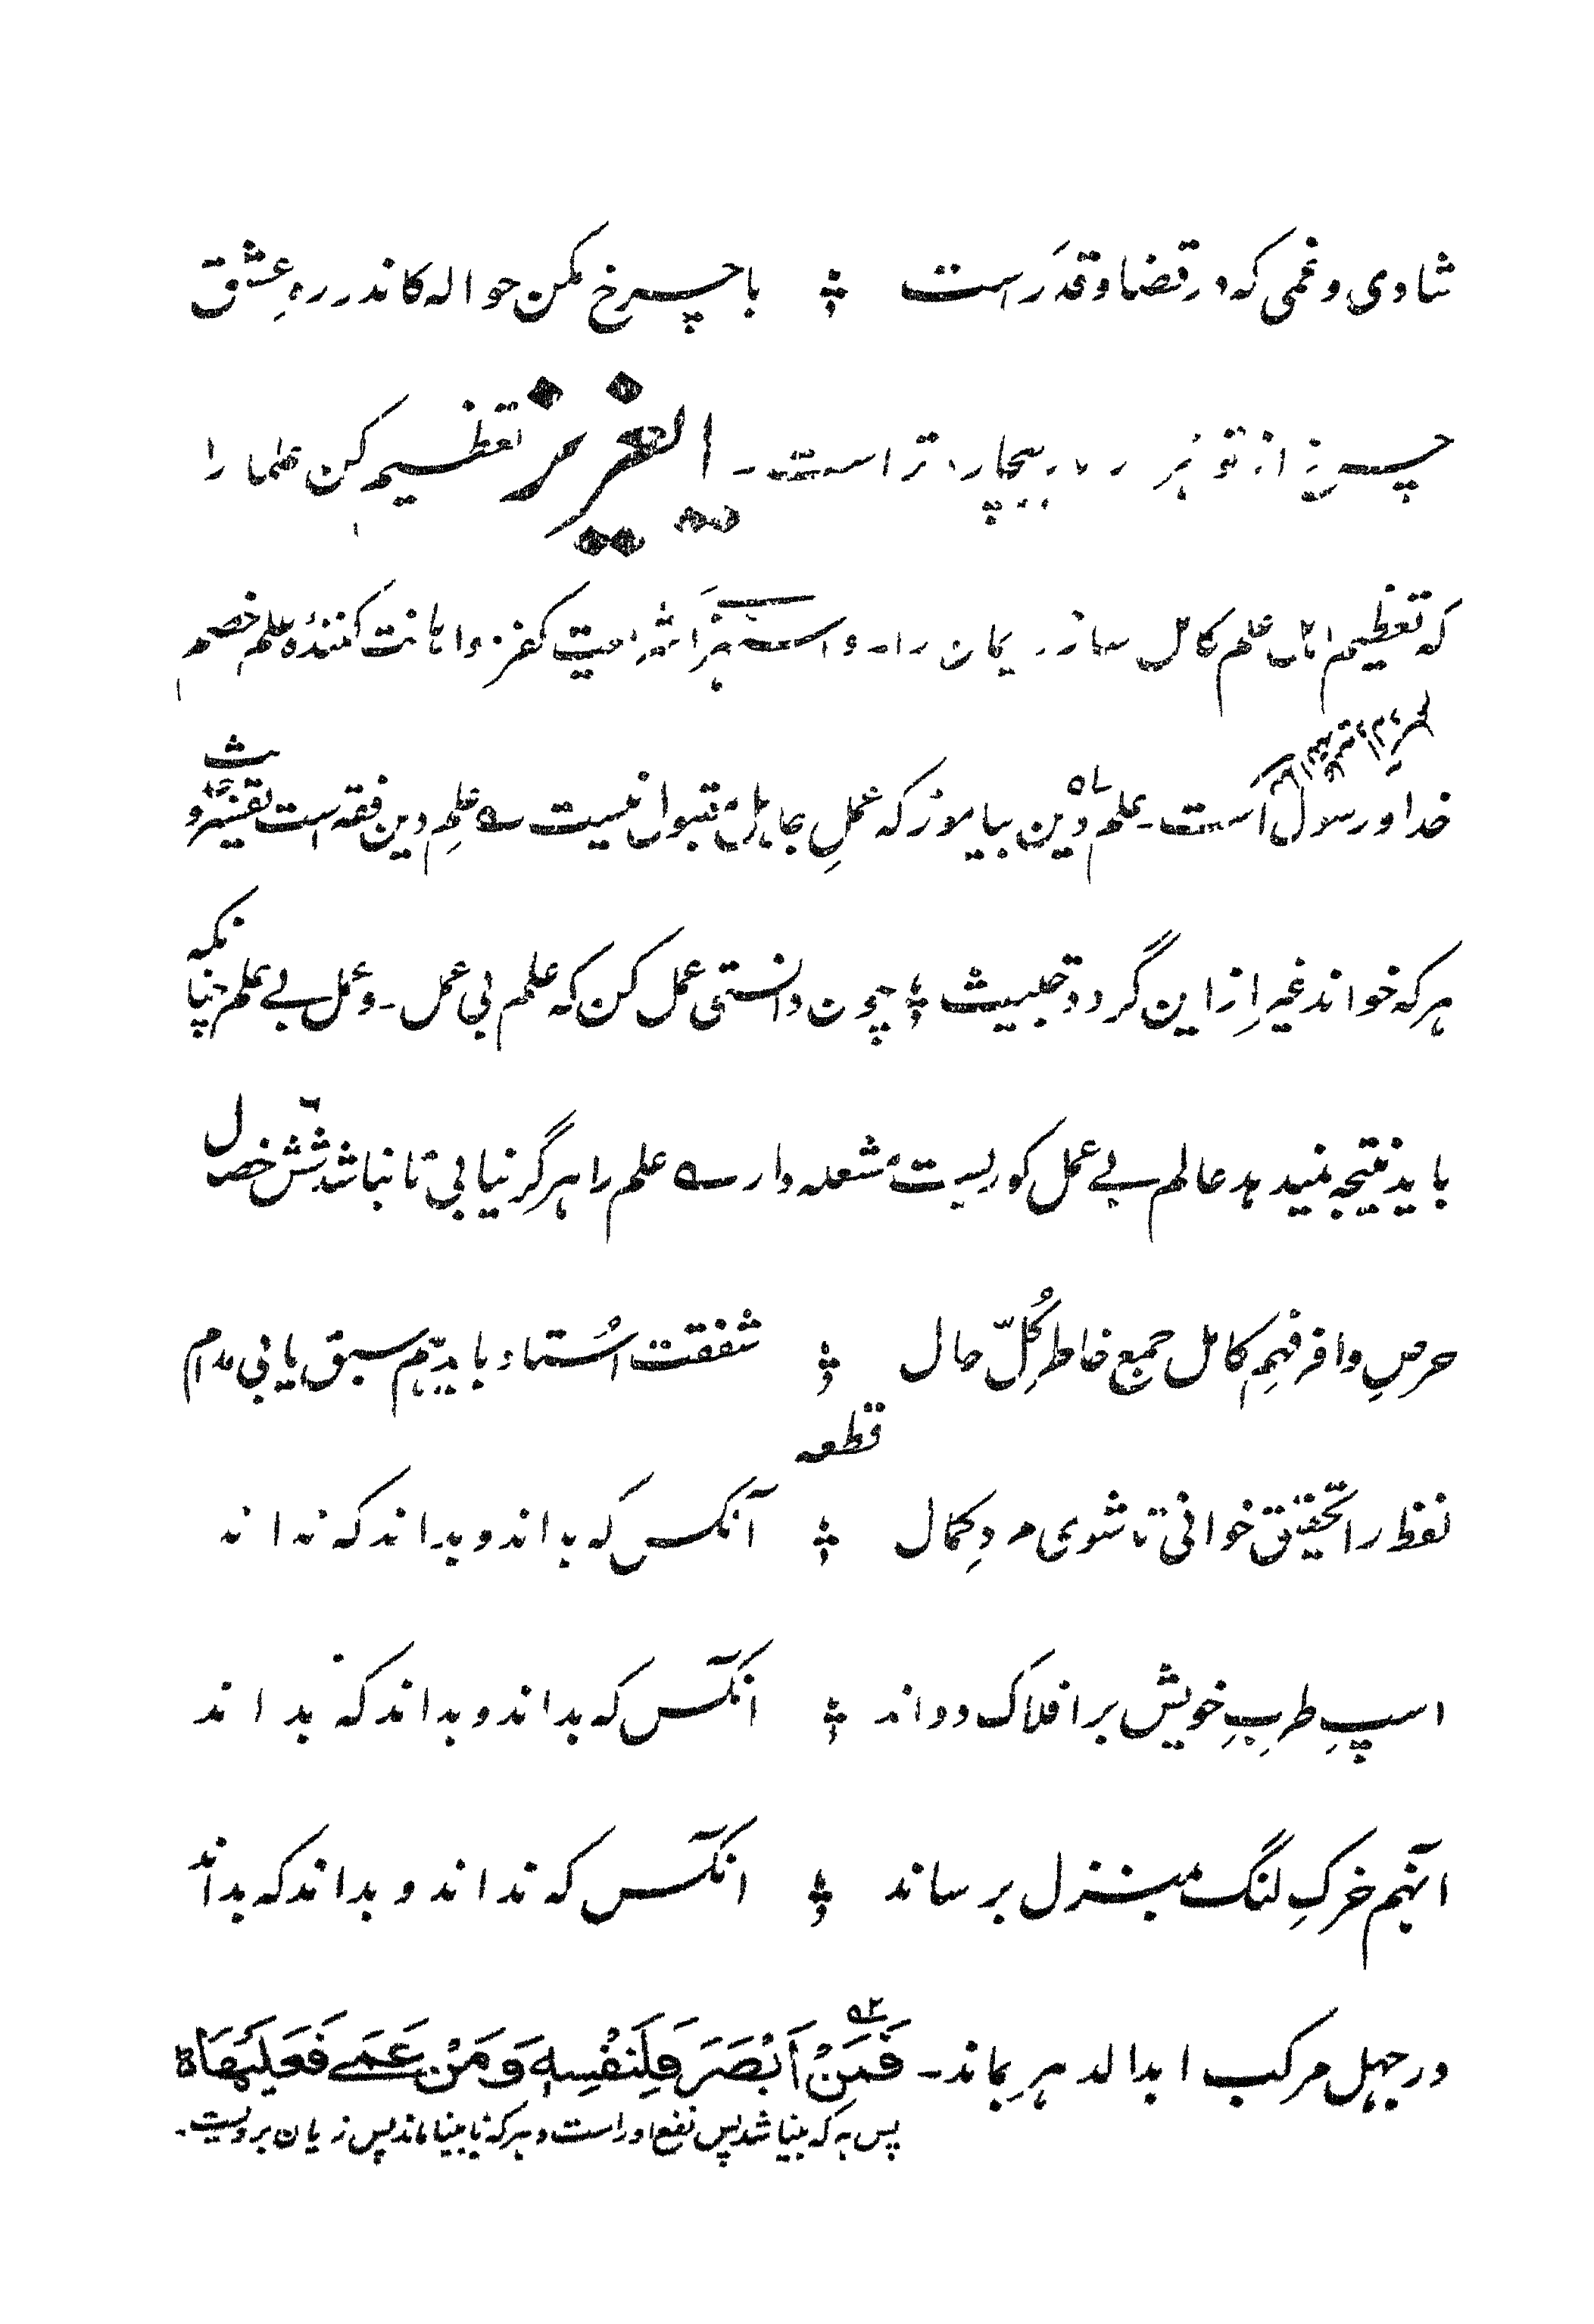 شادی و غمی که در قضا و قدَر است ؞ با چرخ مکن حواله کاندر رہِ عشق
چرخ از تو هزار بار بیچاره تر است - ای عزیز تعظیم کن علما را
که تعظیم اہل علم کامل سازد ایمان را - و استہزا شرامیت کفر و اہانت کنندۂ علم خصم
خدا و رسول است - علم دین بیاموز که عملِ جاہل مقبول نیست ے علمِ دین فقه است تفسیر و حدیث
ہر که خواند غیر ازین گردد خبیث ؞ چون دانستی عمل کن که علم بی عمل - و عمل بے علم چنانکه
باید نتیجه نمیدہد عالم بے عمل کوریست مشعله دار ے علم را ہرگز نیابی تا نباشد شش خصال
حرصِ وافر فہمِ کامل جمع خاطر کُلّ حال ؞ شفقت اُستاد باید ہم سبق یابی مدام
قطعه
لفظ را تحقیق خوانی تا شوی مردِ کمال ؞ آنکس که بداند و بداند که نداند
اسپِ طربِ خویش بر افلاک دواند ؞ آنکس که بداند و بداند که بداند
آنہم خرکِ لنگ بمنزل برساند ؞ آنکس که نداند و بداند که بداند
در جہل مرکب ابد الدہر بماند - فَمَنْ اَبْصَرَ فَلِنَفْسِهٖ وَمَنْ عَمِیَ فَعَلَیْهَا ۃ
پس ہر که بینا شد پس نفع اوراست و ہر که نابینا ماند پس زیان بر ویست -